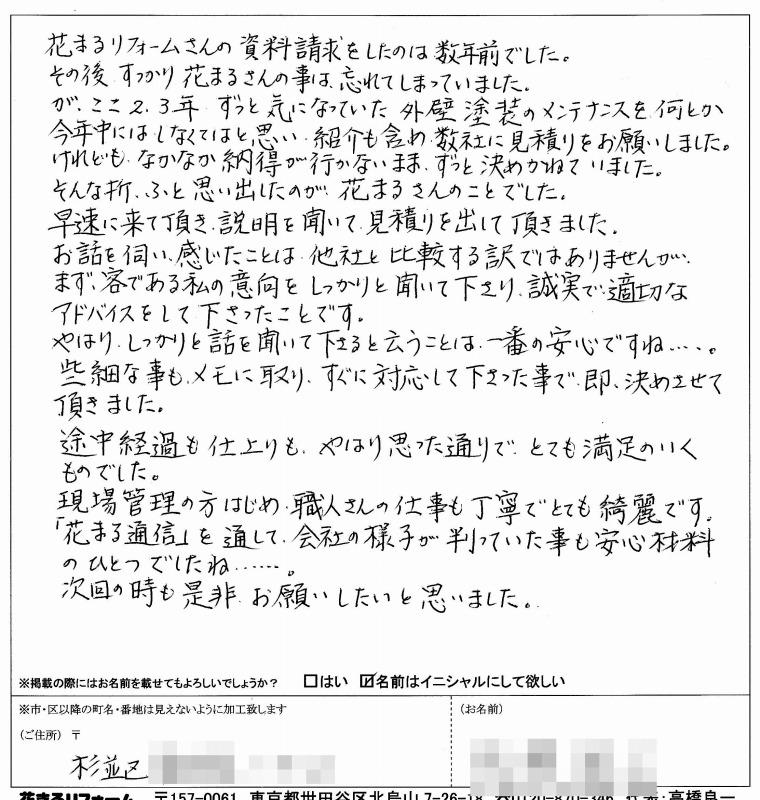 花まるリフォームさんの資料請求をしたのは数年前でした。
その後、すっかり花まるさんの事は、忘れてしまっていました。
が、ここ2、3年、ずっと気になっていた外壁塗装のメンテナンスを何とか
今年中にはしなくてはと思い、紹介も含め、数社に見積りをお願いしました。
けれども、なかなか納得が行かないまま、ずっと決めかねていました。
そんな折、ふと思い出したのが、花まるさんのことでした。
早速に来て頂き、説明を聞いて、見積りを出して頂きました。
お話を伺い、感じたことは、他社と比較する訳ではありませんが、
まず、客である私の意向をしっかりと聞いて下さり、誠実で、適切な
アドバイスをして下さったことです。
やはり、しっかりと話を聞いて下さると云うことは、一番の安心ですね……。
些細な事も、メモに取り、すぐに対応して下さった事で、即、決めさせて
頂きました。
途中経過も仕上りも、やはり思った通りで、とても満足のいく
ものでした。
現場管理の方はじめ、職人さんの仕事も丁寧でとても綺麗です。
「花まる通信」を通して、会社の様子が判っていた事も安心材料
のひとつでしたね……。
次回の時も是非、お願いしたいと思いました。
※掲載の際にはお名前を載せてもよろしいでしょうか? □はい ☑名前はイニシャルにして欲しい
※市・区以降の町名・番地は見えないように加工致します
(お名前)
(ご住所) 〒
杉並区
花まるリフォーム 〒157-0061 東京都世田谷区北烏山7-26-18